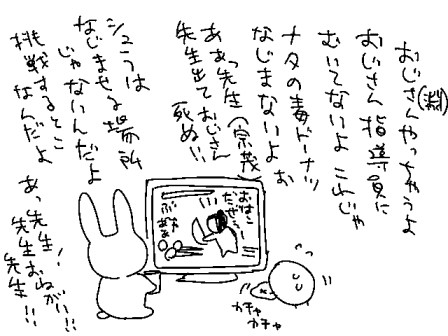 おじさんやっちゃうよ
(渊)
おじさん指導員に
むいてないよ これじゃ
ナタの毒ドーナツ
なじまないよ お
ああっ先生(宗茂)
先生出ておじさん
死ぬ!!
シュラは
なじませる場所
じゃないんだよ
挑戦するとこ
なんだよ
あっ先生!
先生おねがい!!
先生!!
おはこ
だぜぇ!
ふぉ
ああ
ガチャ
ガチャ